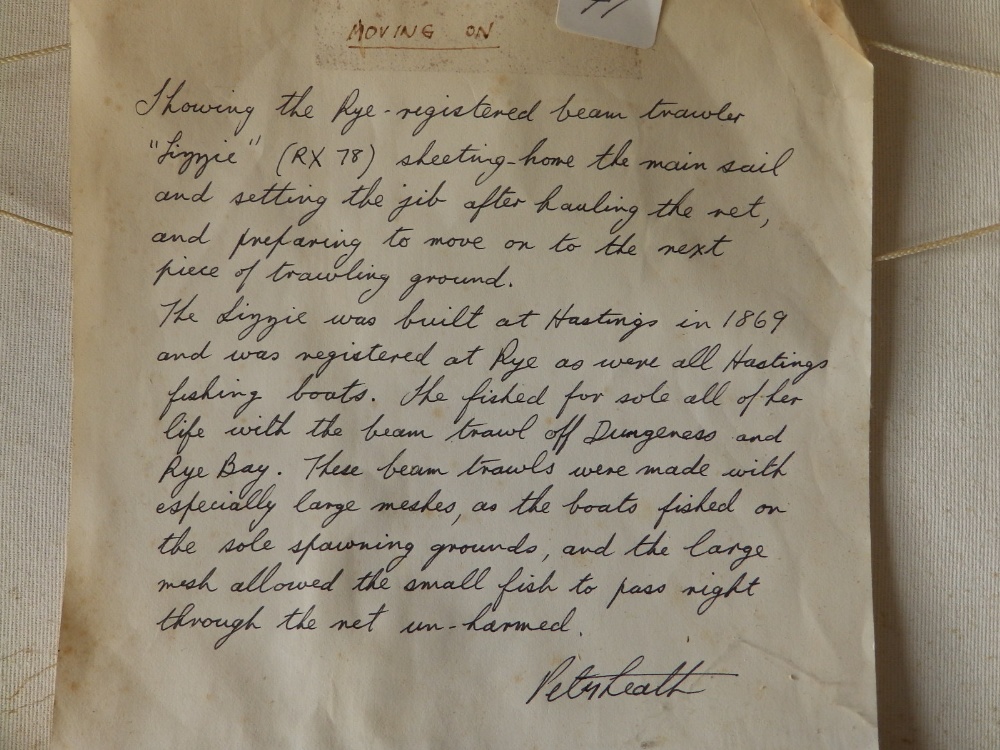 MOVING ON
Showing the Rye-registered beam trawler
"Lizzie" (RX 78) sheeting-home the main sail
and setting the jib after hauling the net,
and preparing to move on to the next
piece of trawling ground.
The Lizzie was built at Hastings in 1869
and was registered at Rye as were all Hastings
fishing boats. She fished for sole all of her
life with the beam trawl off Dungeness and
Rye Bay. These beam trawls were made with
especially large meshes, as the boats fished on
the sole spawning grounds, and the large
mesh allowed the small fish to pass right
through the net un-harmed.